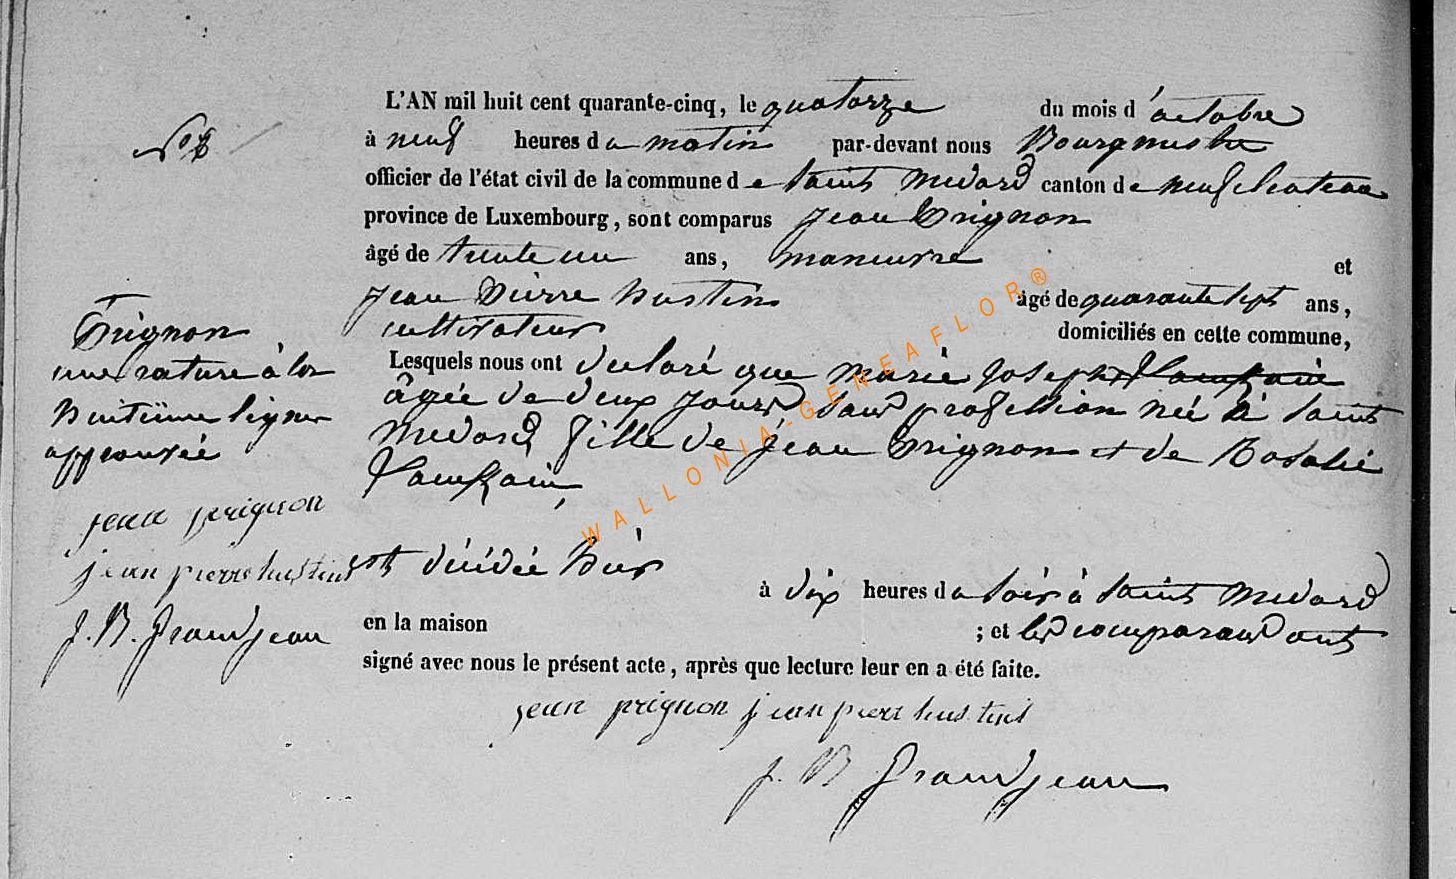 L'AN mil huit cent quarante-cinq, le quatorze du mois d'octobre
à neuf heures du matin par-devant nous Bourgmestre
officier de l'état civil de la commune de Saint Medard canton de neufchateau
province de Luxembourg, sont comparus Jean Prignon
âgé de trente un ans, manœuvre et
Jean Pierre hustin âgé de quarante sept ans,
cultivateur domiciliés en cette commune,
Lesquels nous ont declaré que marie Joseph
âgée de deux jours sans profession née à Saint
Medard fille de Jean Prignon et de Rosalie
est décédée hier
à dix heures du soir à Saint Medard
en la maison ; et les comparans ont
signé avec nous le présent acte, après que lecture leur en a été faite.
jean prignon jean pierre hustin
J. B. Grandjean
Prignon
une rature à la
huitième ligne
approuvée
jean prignon
jean pierre hustin
J. B. Grandjean
WALLONIA-GENEAFLOR®